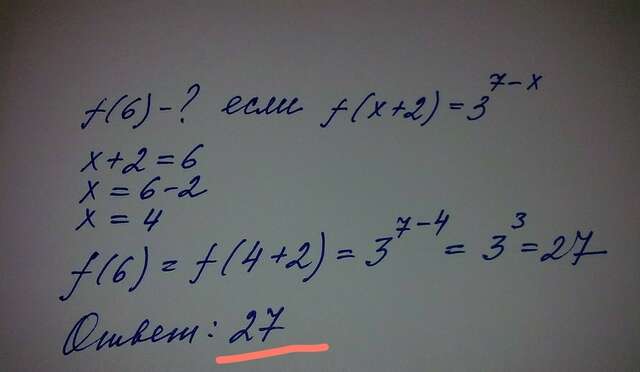 f(6) - ? если f(x+2) = 3^{7-x}
x+2 = 6
x = 6-2
x = 4
f(6) = f(4+2) = 3^{7-4} = 3^3 = 27
Ответ: 27